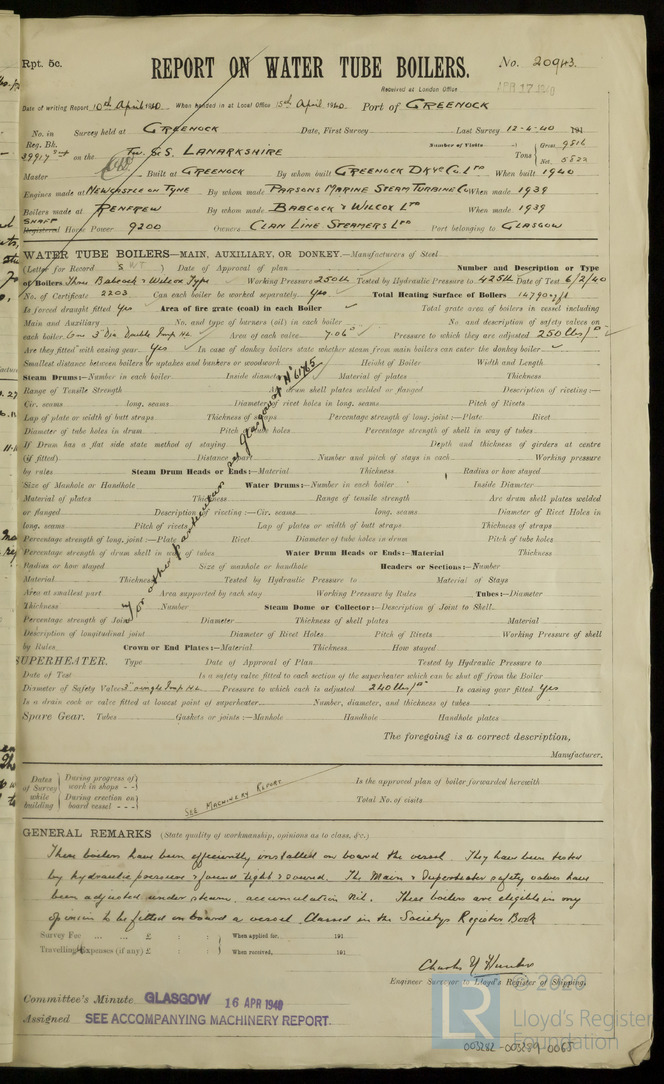 Rpt. 5c.
REPORT ON WATER TUBE BOILERS.
No. 20943.
Received at London Office APR 17 1940
Date of writing Report 10th April 1940 When handed in at Local Office 15th April 1940 Port of GREENOCK
No. in Survey held at GREENOCK Date, First Survey Last Survey 12-4-40 191
Reg. Bk. Number of Visits Gross 9816
39917 on the S.S. LANARKSHIRE Tons Net 5822
Master Built at GREENOCK By whom built GREENOCK DKYD Co Ltd When built 1940
Engines made at NEWCASTLE ON TYNE By whom made PARSONS MARINE STEAM TURBINE Co When made 1939
Boilers made at RENFREW By whom made BABCOCK & WILCOX Ltd When made 1939
SHAFT
Registered Horse Power 9200 Owners CLAN LINE STEAMERS Ltd Port belonging to GLASGOW
WATER TUBE BOILERS—MAIN, AUXILIARY, OR DONKEY.—Manufacturers of Steel
(Letter for Record S ) Date of Approval of plan Number and Description or Type
of Boilers Three Babcock & Wilcox Type Working Pressure 250 lb Tested by Hydraulic Pressure to 425 lb Date of Test 6/2/40
No. of Certificate 2203 Can each boiler be worked separately Yes Total Heating Surface of Boilers 14790
Is forced draught fitted Yes Area of fire grate (coal) in each Boiler Total grate area of boilers in vessel including
Main and Auxiliary No. and type of burners (oil) in each boiler No. and description of safety valves on
each boiler One 3" Dia. Double Imp. H.L. Area of each valve 7.06 Pressure to which they are adjusted 250 lbs/□"
Are they fitted with easing gear Yes In case of donkey boilers state whether steam from main boilers can enter the donkey boiler
Smallest distance between boilers or uptakes and bunkers or woodwork Height of Boiler Width and Length
Steam Drums:—Number in each boiler Inside diameter Material of plates Thickness
Range of Tensile Strength Are drum shell plates welded or flanged Description of riveting:—
Cir. seams long. seams Diameter of rivet holes in long. seams Pitch of Rivets
Lap of plate or width of butt straps Thickness of straps Percentage strength of long. joint:—Plate Rivet
Diameter of tube holes in drum Pitch of tube holes Percentage strength of shell in way of tubes
If Drum has a flat side state method of staying Depth and thickness of girders at centre
(if fitted) Distance apart Number and pitch of stays in each Working pressure
by rules Steam Drum Heads or Ends:—Material Thickness Radius or how stayed
Size of Manhole or Handhole Water Drums:—Number in each boiler Inside Diameter
Material of plates Thickness Range of tensile strength Are drum shell plates welded
or flanged Description of riveting:—Cir. seams long. seams Diameter of Rivet Holes in
long. seams Pitch of rivets Lap of plates or width of butt straps Thickness of straps
Percentage strength of long. joint:—Plate Rivet Diameter of tube holes in drum Pitch of tube holes
Percentage strength of drum shell in way of tubes Water Drum Heads or Ends:—Material Thickness
Radius or how stayed Size of manhole or handhole Headers or Sections:—Number
Material Thickness Tested by Hydraulic Pressure to Material of Stays
Area at smallest part Area supported by each stay Working Pressure by Rules Tubes:—Diameter
Thickness Number Steam Dome or Collector:—Description of Joint to Shell
Percentage strength of Joint Diameter Thickness of shell plates Material
Description of longitudinal joint Diameter of Rivet Holes Pitch of Rivets Working Pressure of shell
by Rules Crown or End Plates:—Material Thickness How stayed
For other particulars see Glasgow rpt No 61365
SUPERHEATER. Type Date of Approval of Plan Tested by Hydraulic Pressure to
Date of Test Is a safety valve fitted to each section of the superheater which can be shut off from the Boiler
Diameter of Safety Valve 3" single Imp. H.L. Pressure to which each is adjusted 240 lbs/□" Is easing gear fitted Yes
Is a drain cock or valve fitted at lowest point of superheater Number, diameter, and thickness of tubes
Spare Gear. Tubes Gaskets or joints:—Manhole Handhole Handhole plates
The foregoing is a correct description,
Manufacturer.
Dates of Survey while building
During progress of work in shops - -
During erection on board vessel - - -
SEE MACHINERY REPORT
Is the approved plan of boiler forwarded herewith
Total No. of visits
GENERAL REMARKS (State quality of workmanship, opinions as to class, &c.)
These boilers have been efficiently installed on board the vessel. They have been tested
by hydraulic pressure & found tight & sound. The Main & Superheater safety valves have
been adjusted under steam, accumulation Nil. These boilers are eligible in my
opinion to be fitted on board a vessel Classed in the Society's Register Book
Survey Fee ... ... £ : : When applied for, 191
Travelling Expenses (if any) £ : : When received, 191
Charles Y Hunter
Engineer Surveyor to Lloyd's Register of Shipping.
Committee's Minute GLASGOW 16 APR 1940
Assigned SEE ACCOMPANYING MACHINERY REPORT.
© 2020
LR
Lloyd's Register
Foundation
003282-003289-0065